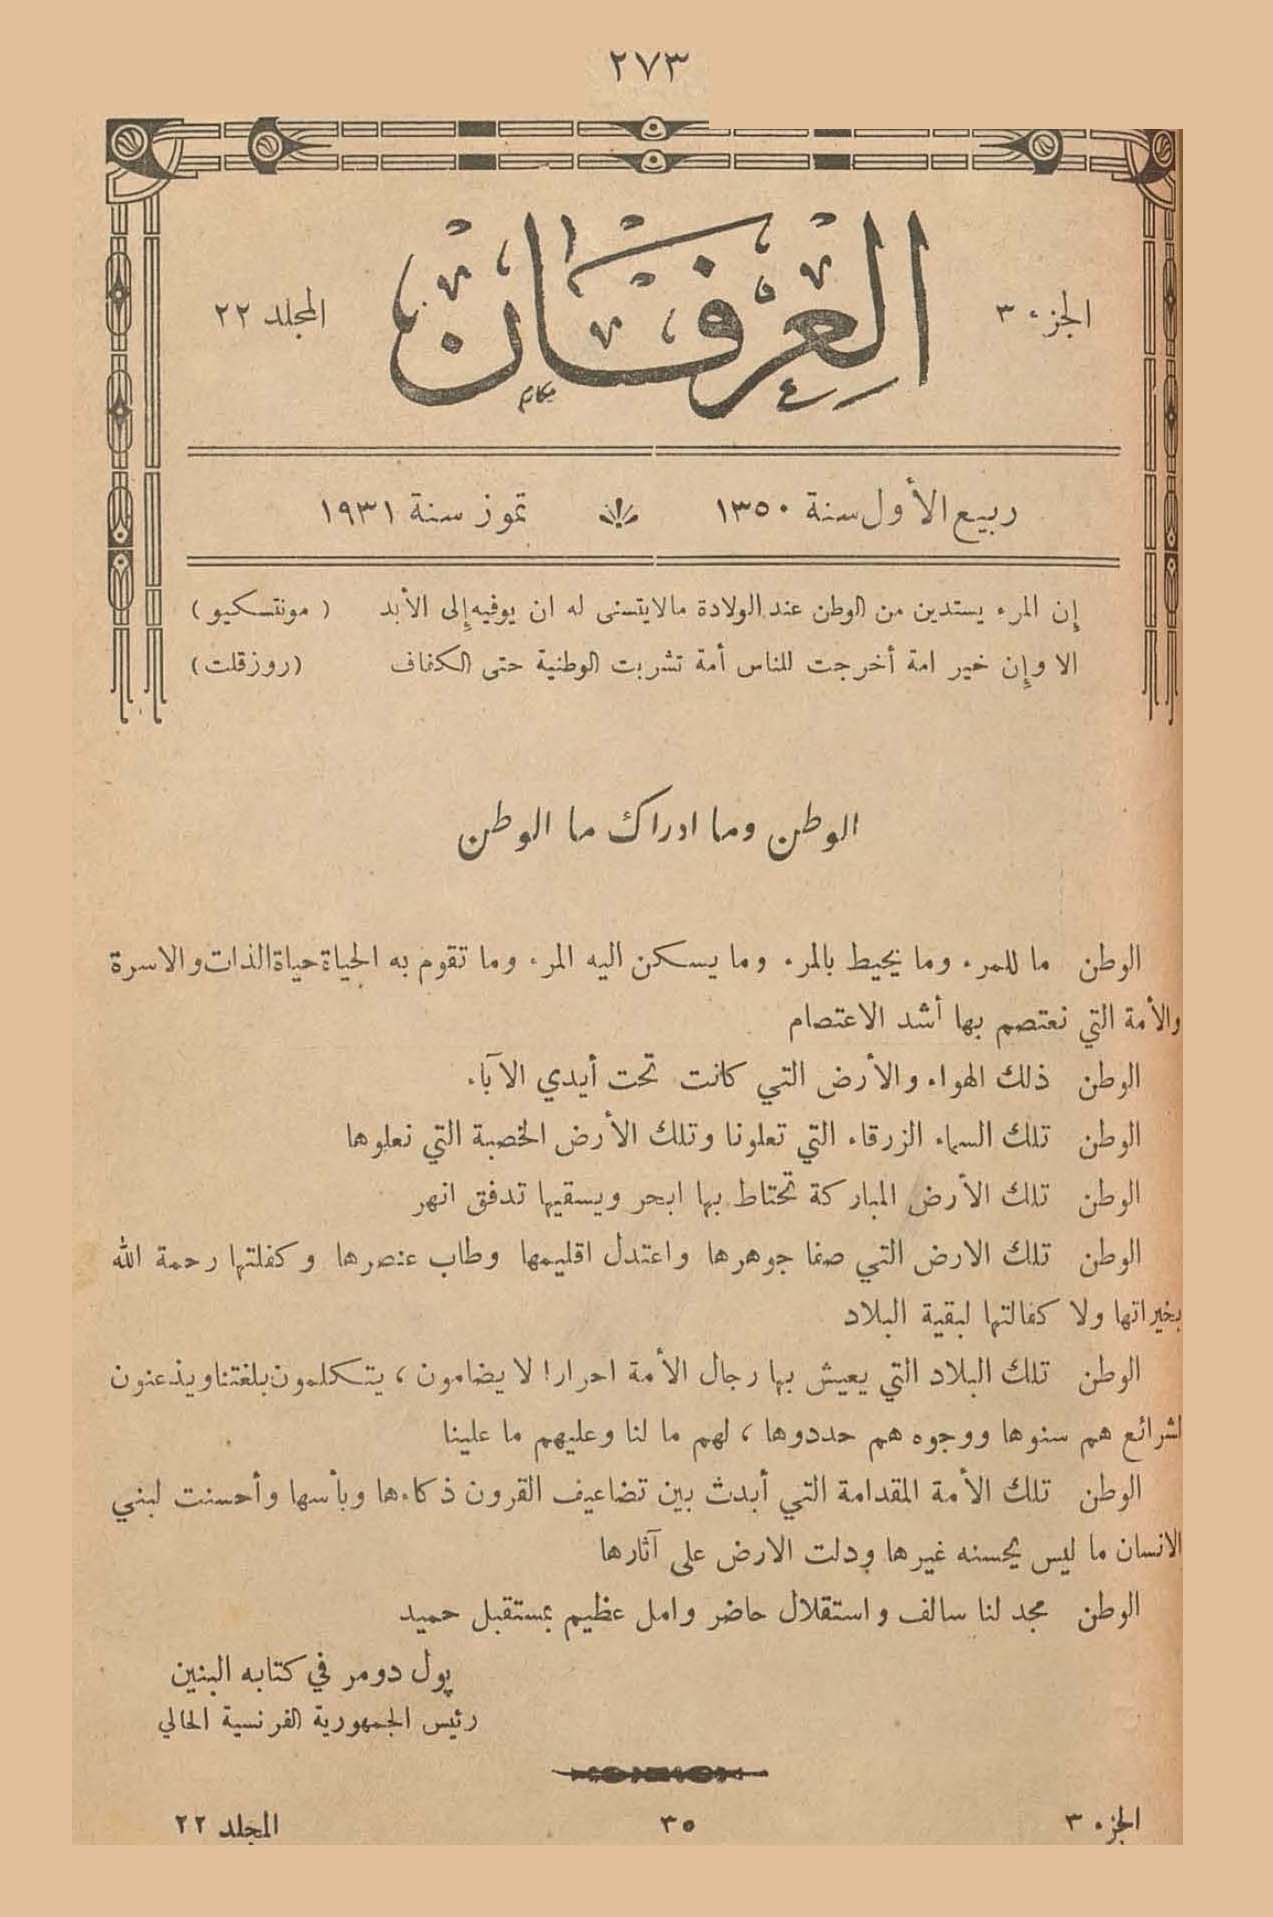 ٢٧٣
الجزء ٣
العرفان
المجلد ٢٢
مكارم
ربيع الأول سنة ١٣٥٠ تموز سنة ١٩٣١
إن المرء يستدين من الوطن عند الولادة مالايتسنى له ان يوفيه إلى الأبد ( مونتسكيو )
الا وإن خير امة أخرجت للناس أمة تشربت الوطنية حتى الكفاف (روزڤلت)
الوطن وما ادراك ما الوطن
الوطن ما للمرء وما يحيط بالمرء وما يسكن اليه المرء وما تقوم به الحياة حياة الذات والاسرة
والأمة التي نعتصم بها أشد الاعتصام
الوطن ذلك الهواء والأرض التي كانت تحت أيدي الآباء
الوطن تلك السماء الزرقاء التي تعلونا وتلك الأرض الخصبة التي نعلوها
الوطن تلك الأرض المباركة تحتاط بها ابحر ويسقيها تدفق انهر
الوطن تلك الارض التي صفا جوهرها واعتدل اقليمها وطاب عنصرها وكفلتها رحمة الله
بخيراتها ولا كفالتها لبقية البلاد
الوطن تلك البلاد التي يعيش بها رجال الأمة احرارا لا يضامون ، يتكلمون بلغتنا ويذعنون
لشرائع هم سنوها ووجوه هم حددوها ، لهم ما لنا وعليهم ما علينا
الوطن تلك الأمة المقدامة التي أبدت بين تضاعيف القرون ذكاءها وبأسها وأحسنت لبني
الانسان ما ليس يحسنه غيرها ودلت الارض على آثارها
الوطن مجد لنا سالف واستقلال حاضر وامل عظيم بمستقبل حميد
پول دومر في كتابه البنين
رئيس الجمهورية الفرنسية الحالي
الجزء ٣ ٣٥ المجلد ٢٢